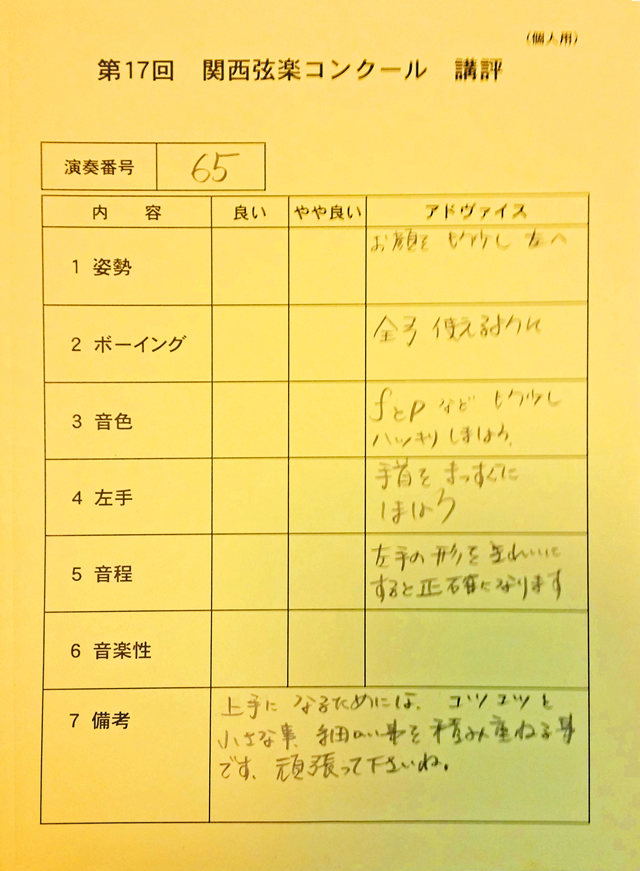 (個人用)
第17回 関西弦楽コンクール 講評
演奏番号 65
内 容 良い やや良い アドヴァイス
1 姿勢 お顔をもう少し左へ
2 ボーイング 全弓使えるように
3 音色 fとpなどもう少し
ハッキリしましょう。
4 左手 手首をまっすぐに
しましょう
5 音程 左手の形をきれいに
すると正確になります
6 音楽性
7 備考 上手になるためには、コツコツと
小さな事、細かい事を積み重ねる事
です、頑張って下さいね。